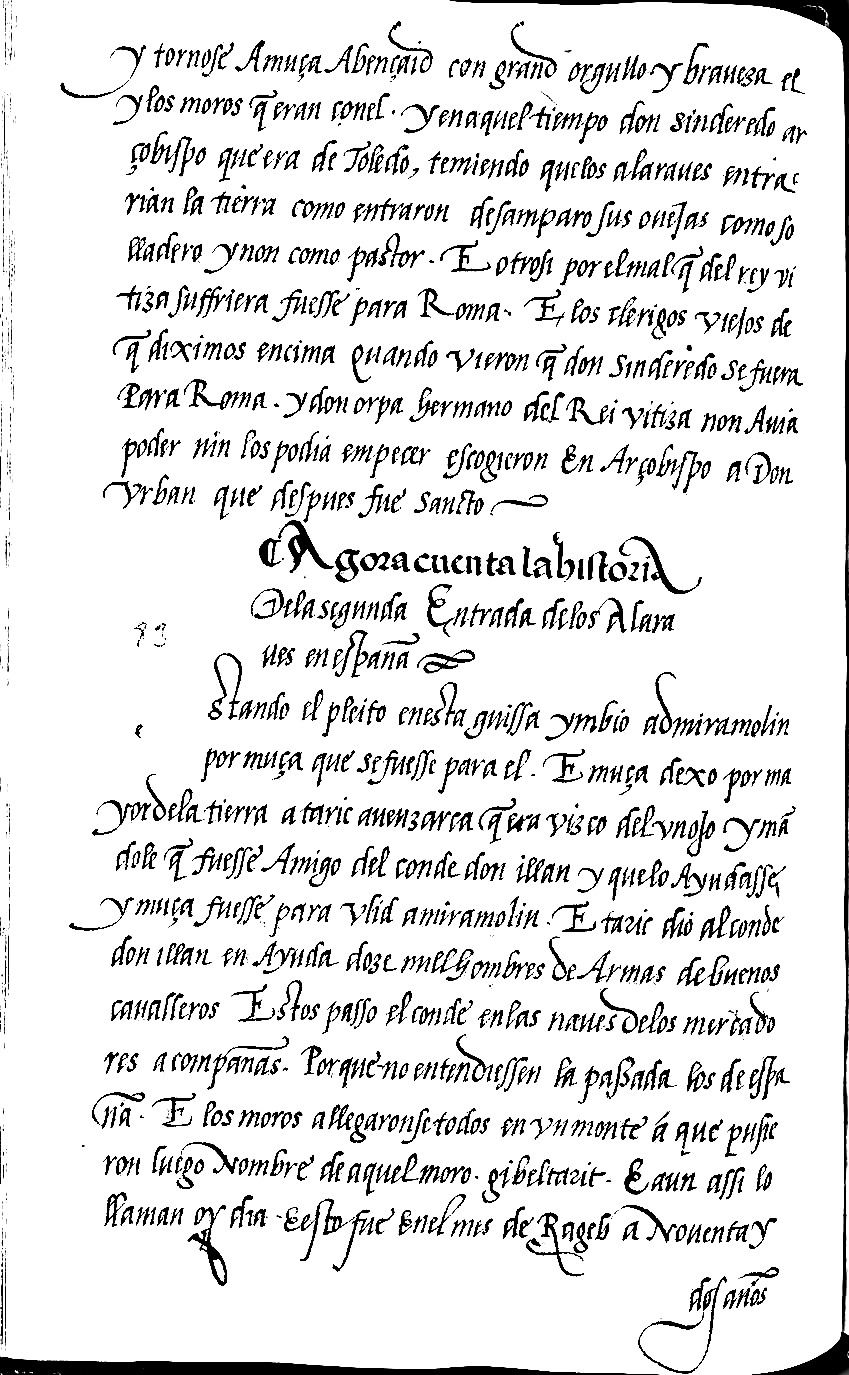 y tornose Amuça Abençaid con grand orgullo y braveza el
y los moros q̃ eran conel. y en aquel tiempo don sinderedo ar
çobispo que era de Toledo, temiendo quelos alaraves entra
rian la tierra como entraron desamparo sus ovejas como so
lladero y non como pastor. E otrosi por el mal q̃ del rey vi
tiza suffriera fuesse para Roma. E los clerigos viejos de
q̃ diximos encima quando vieron q̃ don sinderedo se fuera
Para Roma. y don orpa hermano del Rei vitiza non Avia
poder nin los podia empecer escogieron En Arçobispo a Don
Vrban que despues fue sancto
Agora cuenta la historia
Dela segunda Entrada delos Alara
ves en españa
83
e
stando el pleito enesta guissa ymbio admiramolin
por muça que se fuesse para el. E muça dexo por ma
yor dela tierra a taric avenzarca q̃ era vizco del vn ojo y mã
dole q̃ fuesse Amigo del conde don illan y quelo Ayudasse,
y muça fuesse para vlid amiramolin. E taric dio al conde
don illan en Ayuda doze mill hombres de Armas de buenos
cavalleros Estos passo el conde en las naves delos mercado
res a compañas. Porque no entendiessen la passada los de espa
ña. E los moros allegaronse todos en vn monte á que pusie
ron luego Nombre de aquel moro. gibeltarit. E aun assi lo
llaman oy dia. E esto fue Enel mes de Rageb a Noventa y
dos años